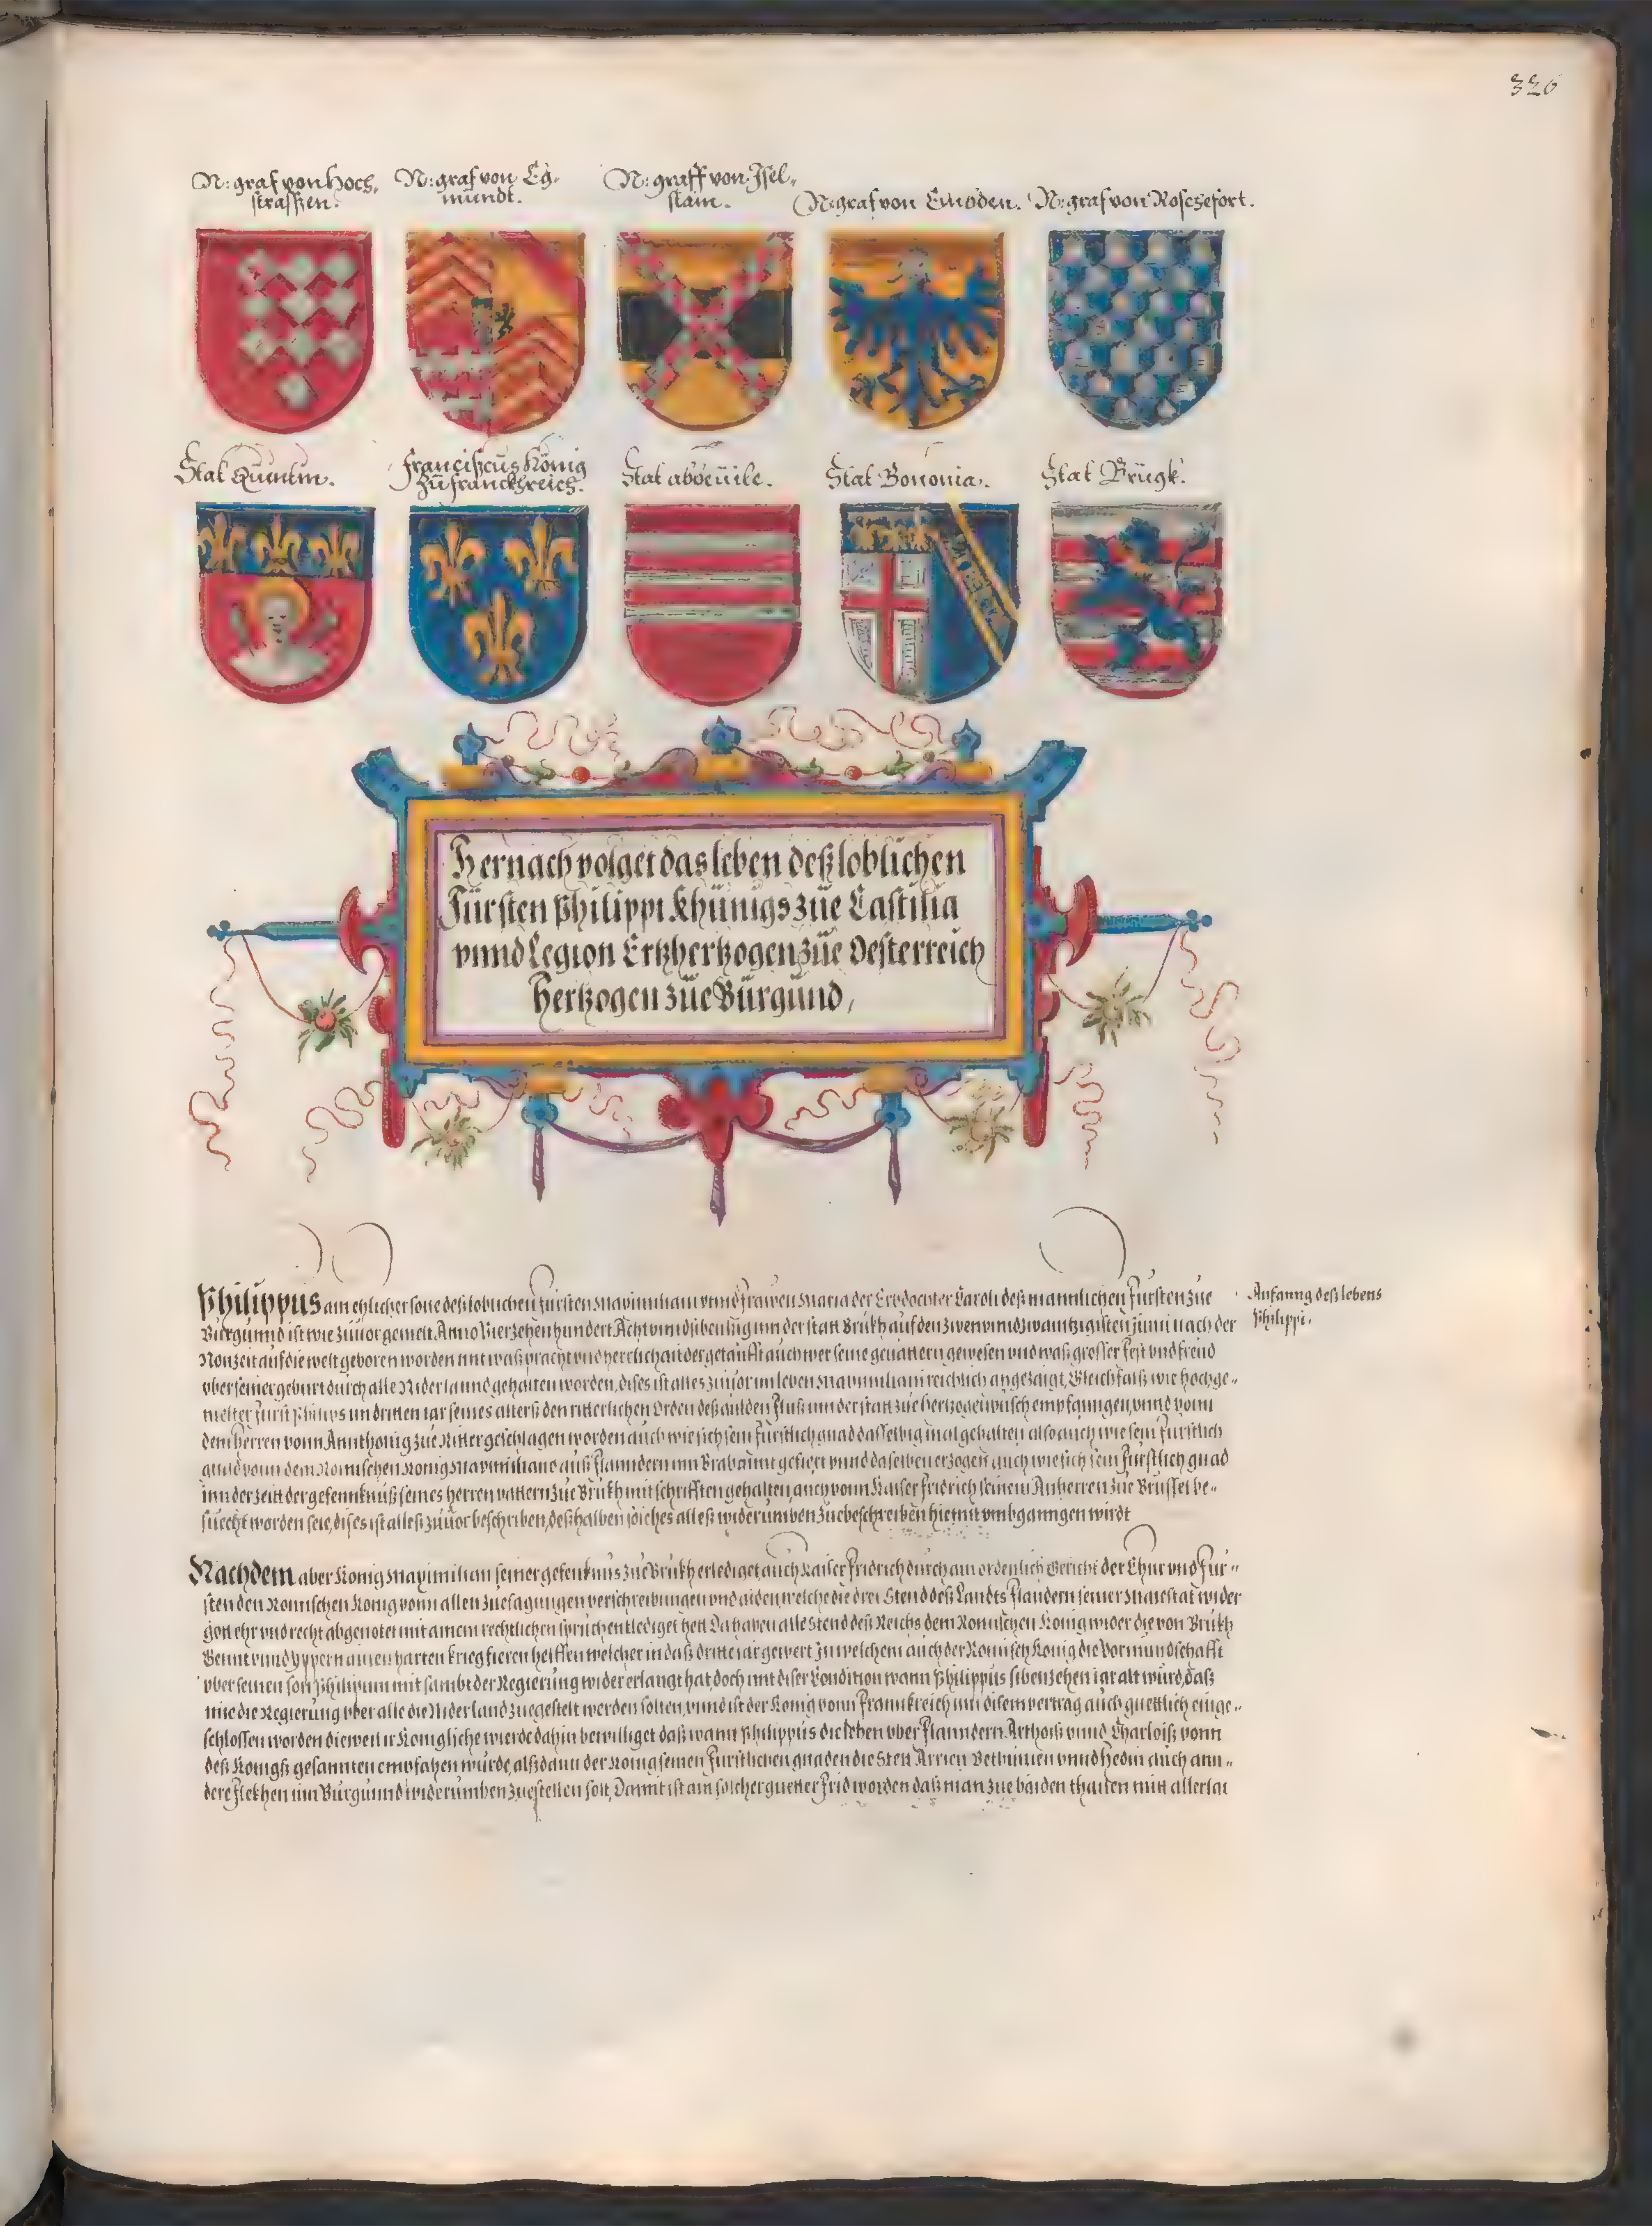 326
N: graf von Hoch,
strassen.
N: graf von Eg,
mündt.
N: graff von Jsel,
stain.
N: graf von Embden.
N: graf von Roschefort.
Stat Quintin.
Franciscus König
zü franckhreich.
Stat abbeüile.
Stat Bononia.
Stat Brügk.
Hernach volget das leben deß loblichen
Fürsten Philippi Khünigs züe Castilia
vnnd Legion Ertzhertzogen züe Oesterreich
Hertzogen züe Bürgünd,
Philippus ain ehlicher sone deß loblichen fürsten Maximiliani vnnd frawen Maria der Erbdochter Caroli deß mannlichen fürsten züe
Bürgünnd ist wie züuor gemelt Anno Vierzehenhündert Acht vnnd sibentzig inn der statt Brükh auf den zwen vnnd zwaintzigisten Junii nach der
Nonzeit auf die welt geboren worden mit waß pracht vnd herrlichait der getaüfft auch wer seine geuattern gewesen vnd waß grosser fest vnd freüd
vber seiner gebürt dürch alle Niderlannd gehalten worden, dises ist alles züuor im leben Maximiliani reichlich angezaigt, Gleichfalß wie hochge-
melter fürst Philips im dritten iar seines alters den ritterlichen Orden deß gülden flüß inn der statt züe hertzogenpüsch empfanngen, vnnd vonn
dem herren vonn Annthonig züe Ritter geschlagen worden auch wie sich sein fürstlich gnad dasselbig mal gehalten also auch wie sein fürstlich
gnad vonn dem Römischen König Maximiliano auß flanndern inn Brabannt gefiert vnnd daselben erzogen auch wie sich sein fürstlich gnad
inn der zeitt der gefennknüß seines herren vattern züe Brükh mit schrifften gehalten, auch vonn Kaiser fridrich seinem Anherren züe Brüssel be-
süecht worden seie, dises ist alleß züuor beschriben, deßhalben solches alleß widerümben zübeschreiben hiemit vmbganngen wirdt
Anfanng deß lebens
Philippi.
Nachdem aber König Maximilian seiner gefenknüs züe Brükh erlediget auch Kaiser fridrich dürch ain ordenlich Gericht der Chür vnd für-
sten den Römischen König vonn allen züesagüngen verschreibüngen vnd aiden, welche die drei Stend deß Landts flandern seiner Maiestat wider
gott ehr vnd recht abgenötet mit ainem rechtlichen sprüch entlediget hett Da haben alle Stend deß Reichs dem Römischen König wider die von Brükh
Gennt vnnd Yppern ainen harten krieg fieren helffen welcher in daß dritte iar gewert In welchem auch der Römisch König die Vormündschafft
vber seinen son Philippum mit sambt der Regierüng wider erlangt hat, doch mit diser Condition wann Philippüs sibenzehen iar alt würd, daß
ime die Regierüng vber alle die Niderland züegestelt werden solten, vnnd ist der König vonn frannkreich inn disem vertrag auch güettlich einge-
schlossen worden dieweil ir Königliche wierde dahin bewilliget daß wann Philippüs die lehen vber flanndern, Arthois vnnd Charlois vonn
deß Königs gesannten empfahen würde, alßdann der König seinen fürstlichen gnaden die Stett Arrien Bethünien vnnd Hedin auch ann-
dere flekhen inn Bürgünnd widerümben züestellen solt, Damit ist ain solcher güetter frid worden daß man züe baiden thailen mitt allerlai